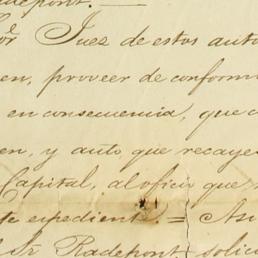 depont.
or Juez de estos auto
en, proveer de conformi
en consecuencia, que
en, y auto que recaye
Capital, al oficio que
te espediente. = Asi
el Sr Radepont, solici